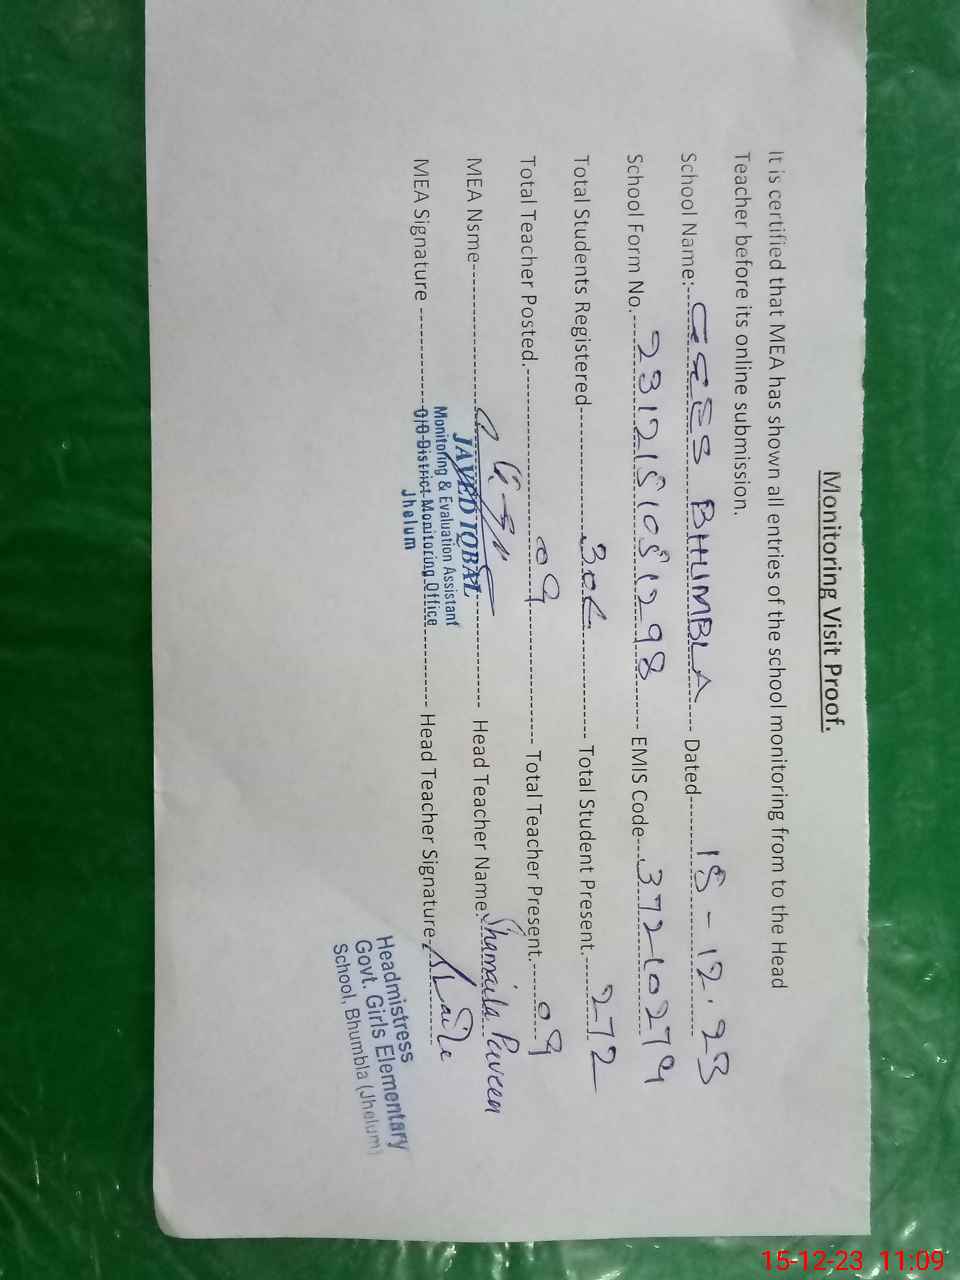 Monitoring Visit Proof.
It is certified that MEA has shown all entries of the school monitoring from to the Head
Teacher before its online submission.
School Name:- GGES BHUMBLA Dated 15-12-23
School Form No. 2312151051298 EMIS Code 37210279
Total Students Registered Total Student Present. 272
Total Teacher Posted. 09 Total Teacher Present. 09
MEA Nsme JAVED IQBAL Head Teacher Name: Shumaila Perveen
Monitoring & Evaluation Assistant
MEA Signature O/O District Monitoring Office Head Teacher Signature
Jhelum
Headmistress
Govt. Girls Elementary
School, Bhumbla (Jhelum)
15-12-23 11:09